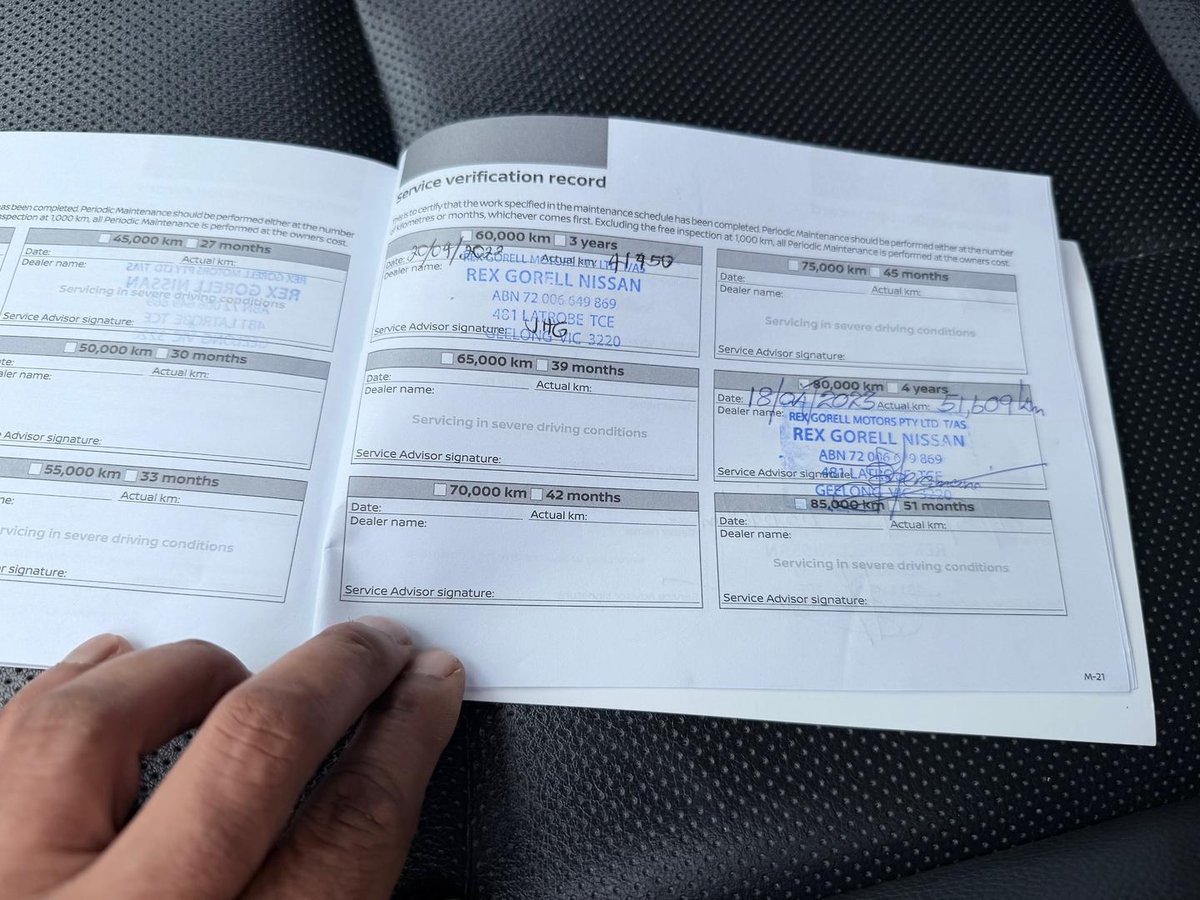 has been completed. Periodic Maintenance should be performed either at the number
inspection at 1,000 km, all Periodic Maintenance is performed at the owners cost.
45,000 km 27 months
Date: Actual km:
Dealer name:
Servicing in severe driving conditions
Service Advisor signature:
50,000 km 30 months
Actual km:
name:
Advisor signature:
55,000 km 33 months
Actual km:
in severe driving conditions
signature:
service verification record
is to certify that the work specified in the maintenance schedule has been completed. Periodic Maintenance should be performed either at the number
kilometres or months, whichever comes first. Excluding the free inspection at 1,000 km, all Periodic Maintenance is performed at the owners cost.
60,000 km 3 years
Date: Actual km:
Dealer name: REX GORELL MOTORS PTY LTD T/AS
REX GORELL NISSAN
ABN 72 006 649 869
481 LATROBE TCE
Service Advisor signature:
GEELONG VIC 3220
65,000 km 39 months
Date: Actual km:
Dealer name:
Servicing in severe driving conditions
Service Advisor signature:
70,000 km 42 months
Date: Actual km:
Dealer name:
Service Advisor signature:
75,000 km 45 months
Date: Actual km:
Dealer name:
Servicing in severe driving conditions
Service Advisor signature:
80,000 km 4 years
Date: 18/04/2023 Actual km: 51,609 km
Dealer name: REX GORELL MOTORS PTY LTD T/AS
REX GORELL NISSAN
ABN 72 006 649 869
Service Advisor signature: 481 LATROBE TCE
GEELONG VIC 3220
85,000 km 51 months
Date: Actual km:
Dealer name:
Servicing in severe driving conditions
Service Advisor signature:
M-21